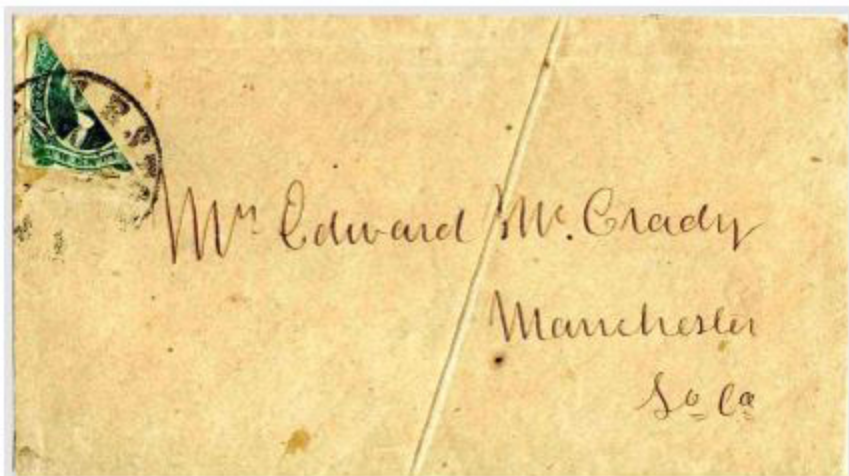 Mrs Edward Mc. Crady
Manchester
So Ca